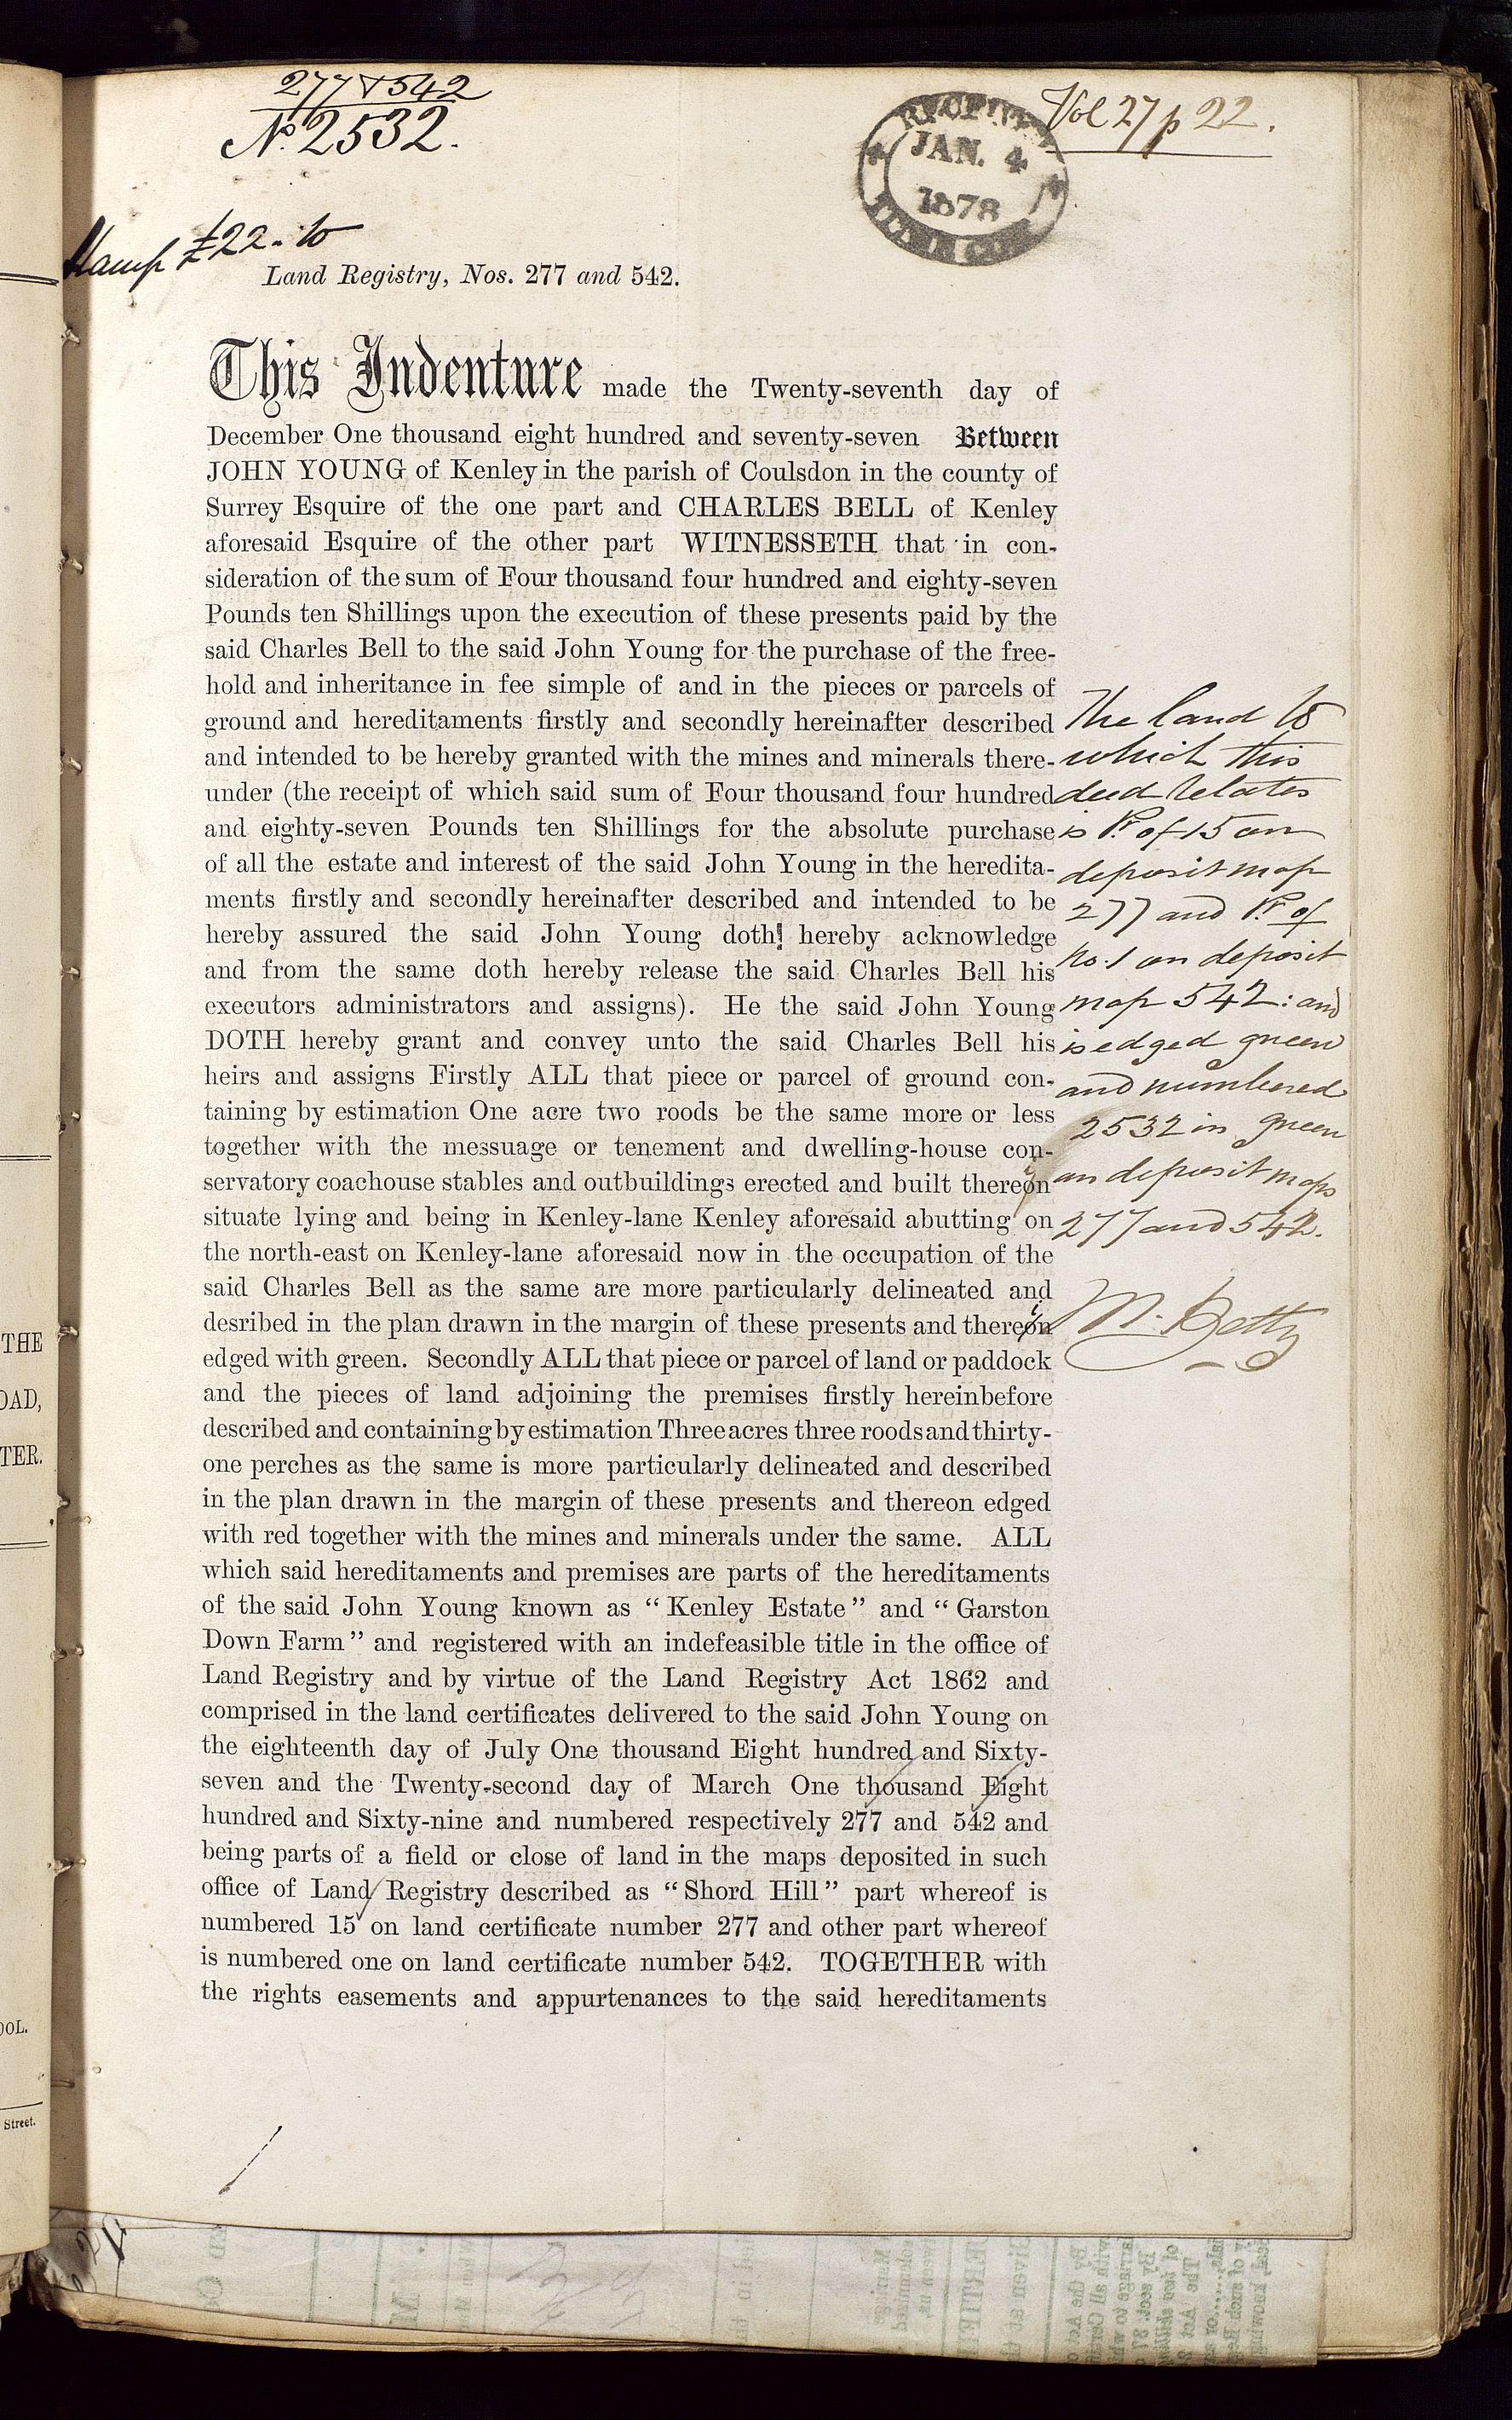 277 & 542
No. 2532.
Vol 27 p 22.
JAN. 4
1878
Stamp £22. 10
Land Registry, Nos. 277 and 542.
This Indenture made the Twenty-seventh day of
December One thousand eight hundred and seventy-seven Between
JOHN YOUNG of Kenley in the parish of Coulsdon in the county of
Surrey Esquire of the one part and CHARLES BELL of Kenley
aforesaid Esquire of the other part WITNESSETH that in con-
sideration of the sum of Four thousand four hundred and eighty-seven
Pounds ten Shillings upon the execution of these presents paid by the
said Charles Bell to the said John Young for the purchase of the free-
hold and inheritance in fee simple of and in the pieces or parcels of
ground and hereditaments firstly and secondly hereinafter described
and intended to be hereby granted with the mines and minerals there-
under (the receipt of which said sum of Four thousand four hundred
and eighty-seven Pounds ten Shillings for the absolute purchase
of all the estate and interest of the said John Young in the heredita-
ments firstly and secondly hereinafter described and intended to be
hereby assured the said John Young doth hereby acknowledge
and from the same doth hereby release the said Charles Bell his
executors administrators and assigns). He the said John Young
DOTH hereby grant and convey unto the said Charles Bell his
heirs and assigns Firstly ALL that piece or parcel of ground con-
taining by estimation One acre two roods be the same more or less
together with the messuage or tenement and dwelling-house con-
servatory coachouse stables and outbuildings erected and built thereon
situate lying and being in Kenley-lane Kenley aforesaid abutting on
the north-east on Kenley-lane aforesaid now in the occupation of the
said Charles Bell as the same are more particularly delineated and
desribed in the plan drawn in the margin of these presents and thereon
edged with green. Secondly ALL that piece or parcel of land or paddock
and the pieces of land adjoining the premises firstly hereinbefore
described and containing by estimation Three acres three roods and thirty-
one perches as the same is more particularly delineated and described
in the plan drawn in the margin of these presents and thereon edged
with red together with the mines and minerals under the same. ALL
which said hereditaments and premises are parts of the hereditaments
of the said John Young known as "Kenley Estate" and "Garston
Down Farm" and registered with an indefeasible title in the office of
Land Registry and by virtue of the Land Registry Act 1862 and
comprised in the land certificates delivered to the said John Young on
the eighteenth day of July One thousand Eight hundred and Sixty-
seven and the Twenty-second day of March One thousand Eight
hundred and Sixty-nine and numbered respectively 277 and 542 and
being parts of a field or close of land in the maps deposited in such
office of Land Registry described as "Shord Hill" part whereof is
numbered 15 on land certificate number 277 and other part whereof
is numbered one on land certificate number 542. TOGETHER with
the rights easements and appurtenances to the said hereditaments
The land to
which this
deed relates
is Pt. of 15 on
deposit map
277 and Pt. of
No. 1 on deposit
map 542: and
is edged green
and numbered
2532 in green
on deposit maps
277 and 542.
M. Betty
THE
OAD,
TER.
OOL.
Street.